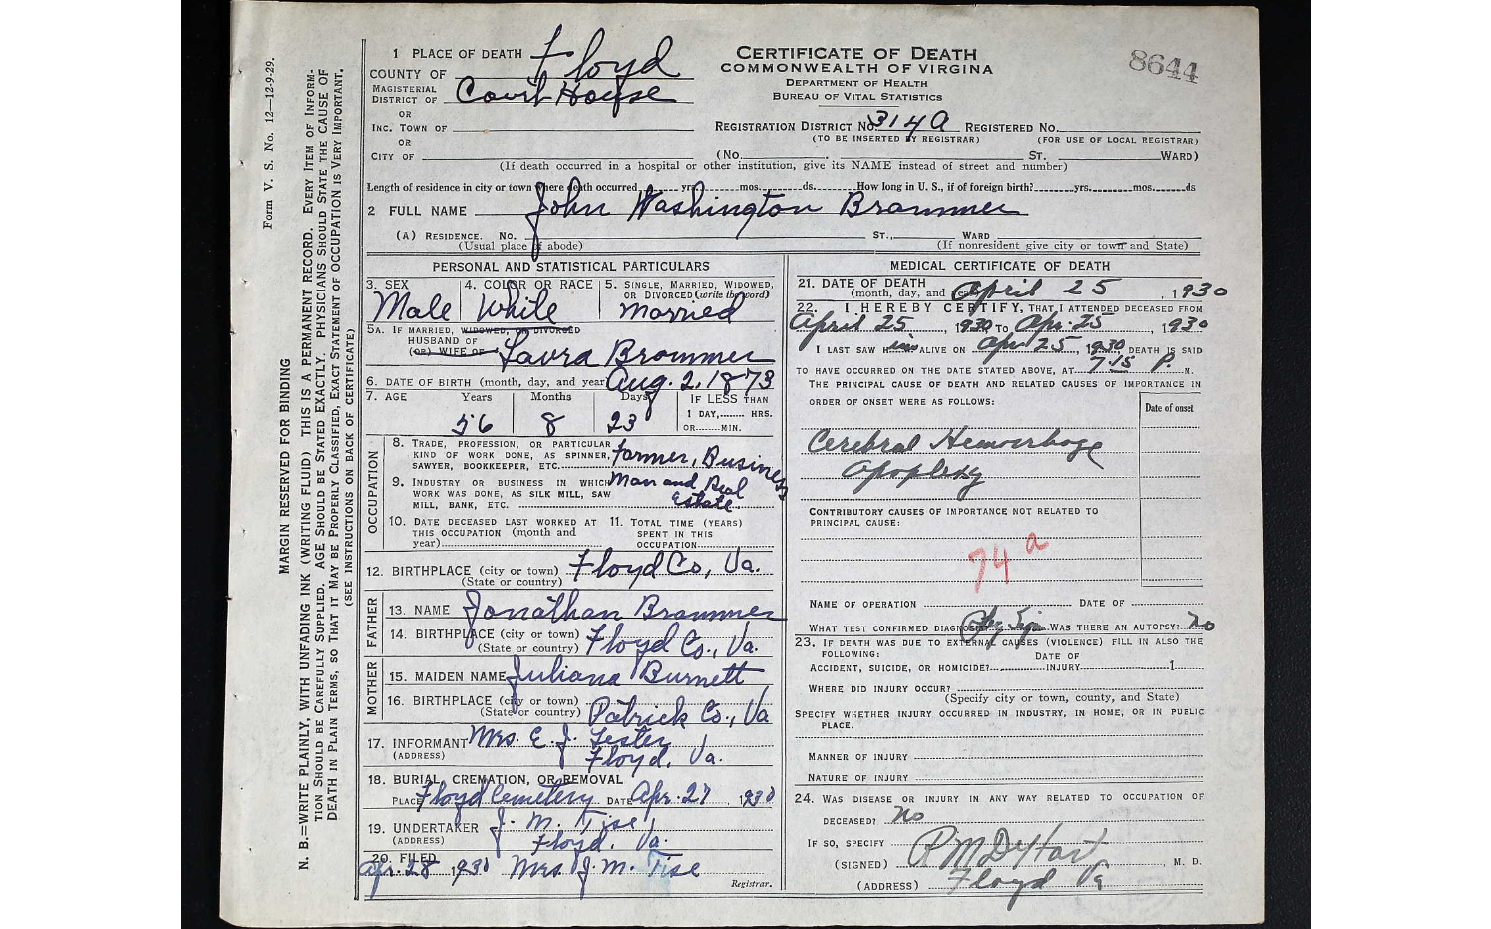 8644
CERTIFICATE OF DEATH
COMMONWEALTH OF VIRGINIA
DEPARTMENT OF HEALTH
BUREAU OF VITAL STATISTICS
1 PLACE OF DEATH
COUNTY OF Floyd
MAGISTERIAL DISTRICT OF Court House
OR
INC. TOWN OF
OR
CITY OF
REGISTRATION DISTRICT No. 314A REGISTERED No.
(TO BE INSERTED BY REGISTRAR) (FOR USE OF LOCAL REGISTRAR)
(No. ST. WARD)
(If death occurred in a hospital or other institution, give its NAME instead of street and number)
Length of residence in city or town where death occurred yrs. mos. ds. How long in U. S., if of foreign birth? yrs. mos. ds
2 FULL NAME John Washington Brammer
(A) RESIDENCE. No. ST., WARD
(Usual place of abode) (If nonresident give city or town and State)
PERSONAL AND STATISTICAL PARTICULARS
3. SEX Male
4. COLOR OR RACE White
5. SINGLE, MARRIED, WIDOWED, OR DIVORCED (write the word) Married
5A. IF MARRIED, WIDOWED, OR DIVORCED
HUSBAND OF
(OR) WIFE OF Laura Brammer
6. DATE OF BIRTH (month, day, and year) Aug. 2, 1873
7. AGE Years Months Days IF LESS THAN
1 DAY, HRS.
OR MIN.
56 8 23
OCCUPATION
8. TRADE, PROFESSION, OR PARTICULAR
KIND OF WORK DONE, AS SPINNER,
SAWYER, BOOKKEEPER, ETC. Farmer, Business
9. INDUSTRY OR BUSINESS IN WHICH Man and Real
WORK WAS DONE, AS SILK MILL, SAW
MILL, BANK, ETC. Estate
10. DATE DECEASED LAST WORKED AT
THIS OCCUPATION (month and
year)
11. TOTAL TIME (YEARS)
SPENT IN THIS
OCCUPATION
12. BIRTHPLACE (city or town) Floyd Co, Va.
(State or country)
FATHER
13. NAME Jonathan Brammer
14. BIRTHPLACE (city or town) Floyd Co., Va.
(State or country)
MOTHER
15. MAIDEN NAME Juliana Burnett
16. BIRTHPLACE (city or town)
(State or country) Patrick Co., Va
17. INFORMANT Mrs. E. J. Lester
(ADDRESS) Floyd, Va.
18. BURIAL, CREMATION, OR REMOVAL
PLACE Floyd Cemetery DATE Apr. 27 1930
19. UNDERTAKER J. M. Tise
(ADDRESS) Floyd, Va.
20. FILED
Apr. 28 1930 Mrs. J. M. Tise
Registrar.
MEDICAL CERTIFICATE OF DEATH
21. DATE OF DEATH
(month, day, and year) April 25, 1930
22. I HEREBY CERTIFY, THAT I ATTENDED DECEASED FROM
April 25, 1930 TO Apr. 25, 1930
I LAST SAW him ALIVE ON Apr 25, 1930 DEATH IS SAID
TO HAVE OCCURRED ON THE DATE STATED ABOVE, AT 7:15 P. M.
THE PRINCIPAL CAUSE OF DEATH AND RELATED CAUSES OF IMPORTANCE IN
ORDER OF ONSET WERE AS FOLLOWS:
Date of onset
Cerebral Hemorrhage
Apoplexy
CONTRIBUTORY CAUSES OF IMPORTANCE NOT RELATED TO
PRINCIPAL CAUSE:
74 a
NAME OF OPERATION DATE OF
WHAT TEST CONFIRMED DIAGNOSIS? WAS THERE AN AUTOPSY? No
23. IF DEATH WAS DUE TO EXTERNAL CAUSES (VIOLENCE) FILL IN ALSO THE
FOLLOWING:
DATE OF
ACCIDENT, SUICIDE, OR HOMICIDE? INJURY 1
WHERE DID INJURY OCCUR?
(Specify city or town, county, and State)
SPECIFY WHETHER INJURY OCCURRED IN INDUSTRY, IN HOME, OR IN PUBLIC
PLACE.
MANNER OF INJURY
NATURE OF INJURY
24. WAS DISEASE OR INJURY IN ANY WAY RELATED TO OCCUPATION OF
DECEASED? No
IF SO, SPECIFY
(SIGNED) R M DeHart, M. D.
(ADDRESS) Floyd Va
Form V. S. No. 12—12-9-29.
MARGIN RESERVED FOR BINDING
N. B.—WRITE PLAINLY, WITH UNFADING INK (WRITING FLUID) THIS IS A PERMANENT RECORD. EVERY ITEM OF INFORM-
TION SHOULD BE CAREFULLY SUPPLIED. AGE SHOULD BE STATED EXACTLY. PHYSICIANS SHOULD STATE THE CAUSE OF
DEATH IN PLAIN TERMS, SO THAT IT MAY BE PROPERLY CLASSIFIED. EXACT STATEMENT OF OCCUPATION IS VERY IMPORTANT.
(SEE INSTRUCTIONS ON BACK OF CERTIFICATE)